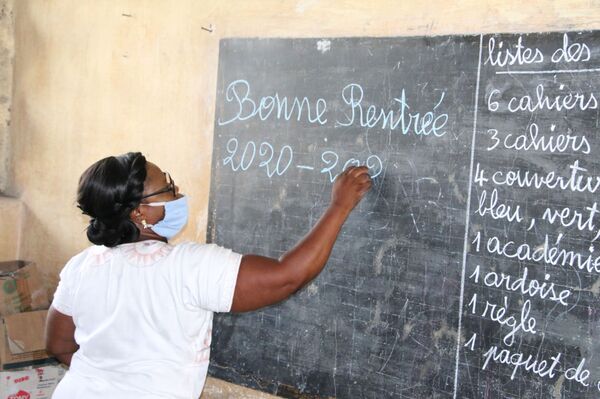 Bonne Rentrée
2020-202
listes des
6 cahiers
3 cahiers
4 couvertu
bleu, vert,
1 académie
1 ardoise
1 règle
1 paquet de